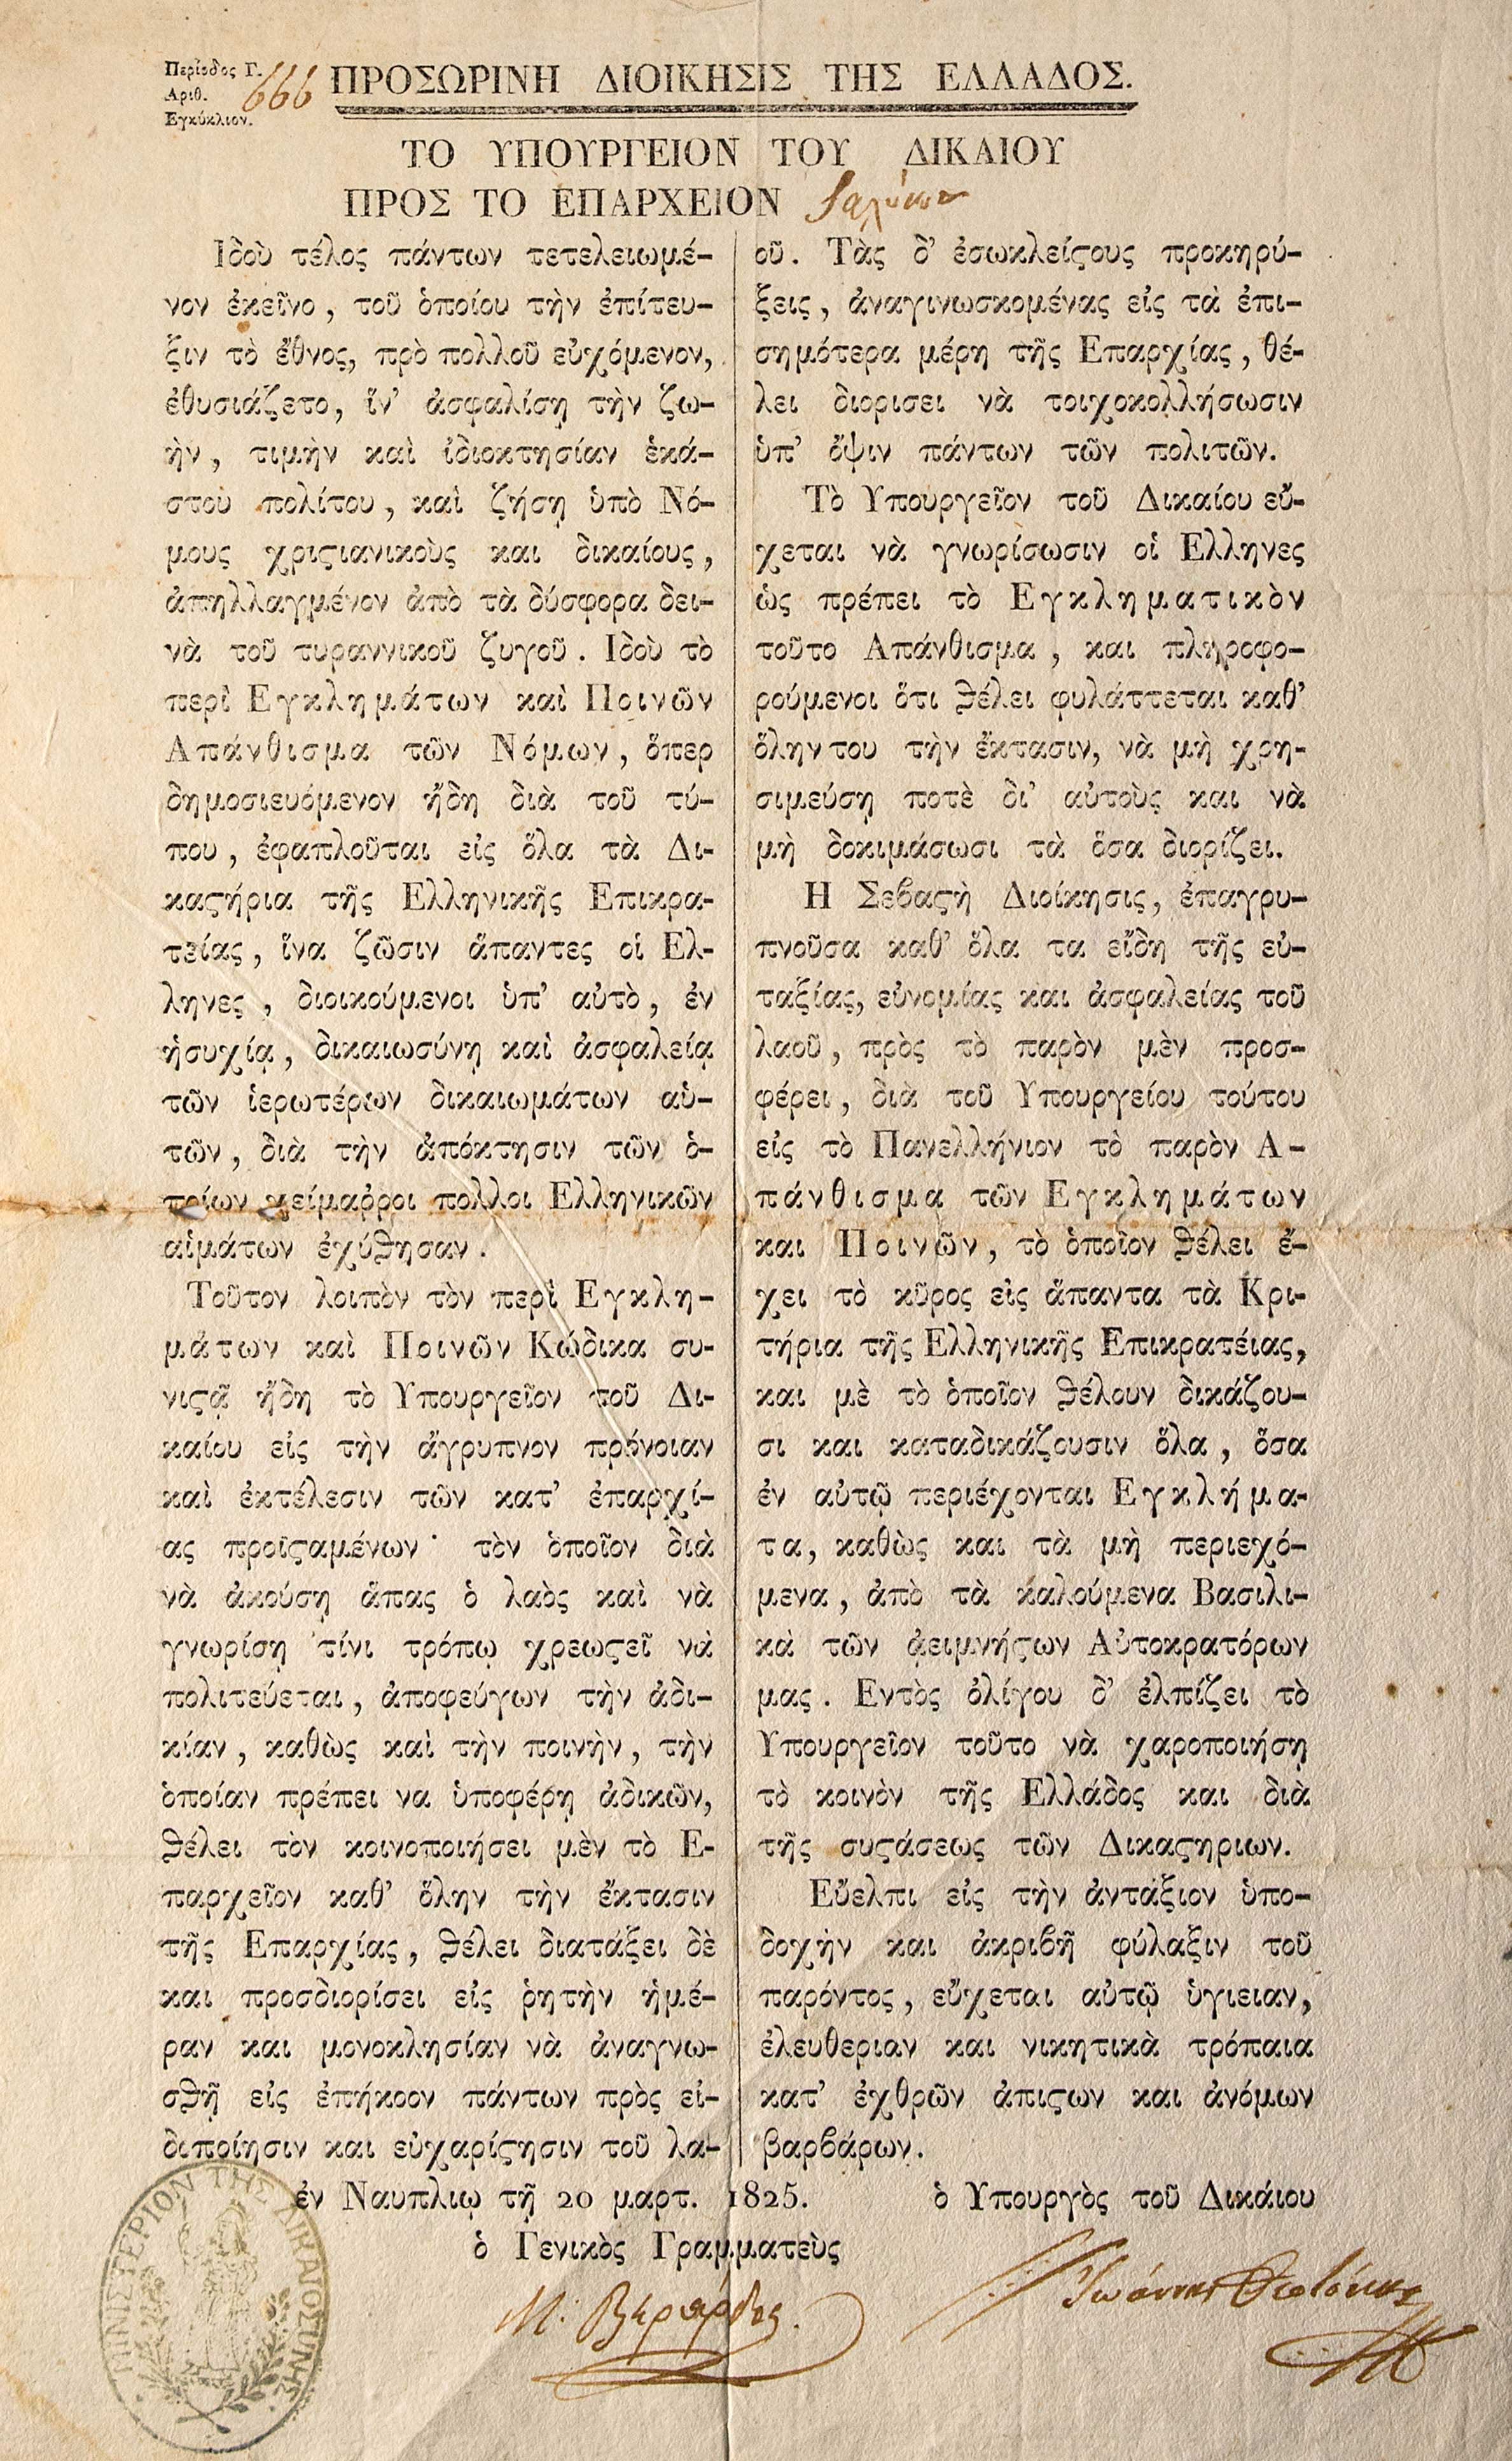 Περίοδος Γ.
Αριθ. 666
Εγκύκλιον.
ΠΡΟΣΩΡΙΝΗ ΔΙΟΙΚΗΣΙΣ ΤΗΣ ΕΛΛΑΔΟΣ.
ΤΟ ΥΠΟΥΡΓΕΙΟΝ ΤΟΥ ΔΙΚΑΙΟΥ
ΠΡΟΣ ΤΟ ΕΠΑΡΧΕΙΟΝ
Ιδοὺ τέλος πάντων τετελειωμέ-
νον ἐκεῖνο, τοῦ ὁποίου τὴν ἐπίτευ-
ξιν τὸ ἔθνος, πρὸ πολλοῦ εὐχόμενον,
ἐθυσιάζετο, ἵν' ἀσφαλίσῃ τὴν ζω-
ὴν, τιμὴν καὶ ἰδιοκτησίαν ἑκά-
στου πολίτου, καὶ ζήσῃ ὑπὸ Νό-
μους χριϛιανικοὺς και δικαίους,
ἀπηλλαγμένον ἀπὸ τὰ δύσφορα δει-
νὰ τοῦ τυραννικοῦ ζυγοῦ. Ιδοὺ τὸ
περὶ Εγκλημάτων καὶ Ποινῶν
Απάνθισμα τῶν Νόμων, ὅπερ
δημοσιευόμενον ἤδη διὰ τοῦ τύ-
που, ἐφαπλοῦται εἰς ὅλα τὰ Δι-
καϛήρια τῆς Ελληνικῆς Επικρα-
τείας, ἵνα ζῶσιν ἅπαντες οἱ Ελ-
ληνες, διοικούμενοι ὑπ' αὐτὸ, ἐν
ἡσυχίᾳ, δικαιωσύνῃ καὶ ἀσφαλείᾳ
τῶν ἱερωτέρων δικαιωμάτων αὑ-
τῶν, διὰ τὴν ἀπόκτησιν τῶν ὁ-
ποίων χείμαῤῥοι πολλοι Ελληνικῶν
αἱμάτων ἐχύθησαν.
Τοῦτον λοιπὸν τὸν περὶ Εγκλη-
μάτων καὶ Ποινῶν Κώδικα συ-
νιϛᾷ ἤδη τὸ Υπουργεῖον τοῦ Δι-
καίου εἰς τὴν ἄγρυπνον πρόνοιαν
καὶ ἐκτέλεσιν τῶν κατ' ἐπαρχί-
ας προϊϛαμένων· τὸν ὁποῖον διὰ
νὰ ἀκούσῃ ἅπας ὁ λαὸς καὶ νὰ
γνωρίσῃ τίνι τρόπῳ χρεωϛεῖ νὰ
πολιτεύεται, ἀποφεύγων τὴν ἀδι-
κίαν, καθὼς καὶ τὴν ποινὴν, τὴν
ὁποίαν πρέπει να ὑποφέρῃ ἀδικῶν,
θέλει τὸν κοινοποιήσει μὲν τὸ Ε-
παρχεῖον καθ' ὅλην τὴν ἔκτασιν
τῆς Επαρχίας, θέλει διατάξει δὲ
και προσδιορίσει εἰς ῥητὴν ἡμέ-
ραν και μονοκλησίαν νὰ ἀναγνω-
σθῇ εἰς ἐπήκοον πάντων πρὸς εἰ-
διποίησιν και εὐχαρίϛησιν τοῦ λα-
οῦ. Τὰς δ' ἐσωκλείϛους προκηρύ-
ξεις, ἀναγινωσκομένας εἰς τὰ ἐπι-
σημότερα μέρη τῆς Επαρχίας, θέ-
λει διορισει νὰ τοιχοκολλήσωσιν
ὑπ' ὄψιν πάντων τῶν πολιτῶν.
Τὸ Υπουργεῖον τοῦ Δικαίου εὔ-
χεται νὰ γνωρίσωσιν οἱ Ελληνες
ὡς πρέπει τὸ Εγκληματικὸν
τοῦτο Απάνθισμα, και πληροφο-
ρούμενοι ὅτι θέλει φυλάττεται καθ'
ὅλην του τὴν ἔκτασιν, νὰ μὴ χρη-
σιμεύσῃ ποτὲ δι' αὐτοὺς και νὰ
μὴ δοκιμάσωσι τὰ ὅσα διορίζει.
Η Σεβαϛὴ Διοίκησις, ἐπαγρυ-
πνοῦσα καθ' ὅλα τα εἴδη τῆς εὐ-
ταξίας, εὐνομίας και ἀσφαλείας τοῦ
λαοῦ, πρὸς τὸ παρὸν μὲν προσ-
φέρει, διὰ τοῦ Υπουργείου τούτου
εἰς τὸ Πανελλήνιον τὸ παρὸν Α-
πάνθισμα τῶν Εγκλημάτων
και Ποινῶν, τὸ ὁποῖον θέλει ἔ-
χει τὸ κῦρος εἰς ἅπαντα τὰ Κρι-
τήρια τῆς Ελληνικῆς Επικρατέιας,
και μὲ τὸ ὁποῖον θέλουν δικάζου-
σι και καταδικάζουσιν ὅλα, ὅσα
ἐν αὐτῷ περιέχονται Εγκλήμα-
τα, καθὼς και τὰ μὴ περιεχό-
μενα, ἀπὸ τὰ καλούμενα Βασιλι-
κὰ τῶν ἀειμνήϛων Αὐτοκρατόρων
μας. Εντὸς ὀλίγου δ' ἐλπίζει τὸ
Υπουργεῖον τοῦτο νὰ χαροποιήσῃ
τὸ κοινὸν τῆς Ελλάδος και διὰ
τῆς συϛάσεως τῶν Δικαϛηριων.
Εὔελπι εἰς τὴν ἀντάξιον ὑπο-
δοχὴν και ἀκριβῆ φύλαξιν τοῦ
παρόντος, εὔχεται αὐτῷ ὑγιειαν,
ἐλευθεριαν και νικητικὰ τρόπαια
κατ' ἐχθρῶν ἀπιϛων και ἀνόμων
βαρβάρων.
ἐν Ναυπλιῳ τῇ 20 μαρτ. 1825.
ὁ Υπουργὸς τοῦ Δικάιου
ὁ Γενικὸς Γραμματεὺς
Ἰωάννης Θεοτόκης
ΜΙΝΙΣΤΕΡΙΟΝ ΤΗΣ ΔΙΚΑΙΟΣΥΝΗΣ